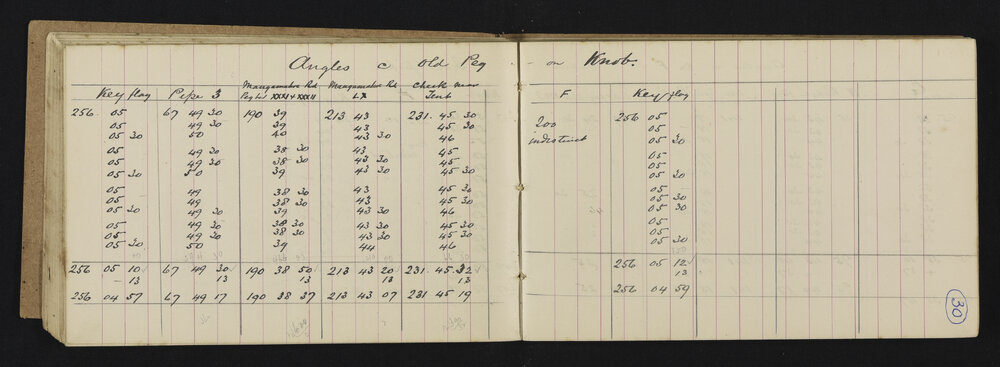 Angles c Old Peg - on Knob.
Key flag Pepe 3 Mangamahoe Rd Mangamahoe Rd Check near F Key flag
XXXI + XXXII LX Tent
256 05 67 49 30 190 39 213 43 231 45 30 200 256 05
05 49 30 39 43 45 30 indistinct 05
05 30 50 40 43 30 46 05 30
05 49 30 38 30 43 45 05
05 49 30 38 30 43 30 45 05
05 30 50 39 43 30 45 30 05 30
05 49 38 30 43 45 30 05
05 49 38 30 43 45 05 30
05 30 49 30 39 43 30 46 05 30
05 49 30 38 30 43 30 45 30 05
05 49 30 38 30 43 30 45 30 05
05 30 50 39 44 46 05 30
256 05 10 67 49 30 190 38 50 213 43 20 231 45 32 256 05 12
- 13 13 13 13 13 13
256 04 57 67 49 17 190 38 37 213 43 07 231 45 19 256 04 59
30